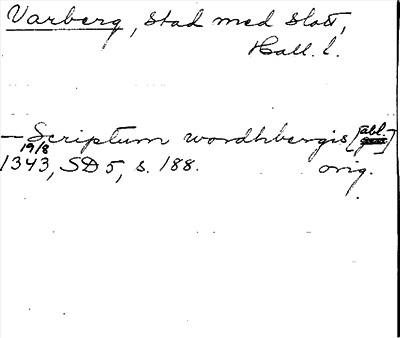 Varberg, stad med slott,
Hall. l.
— Scriptum wordhbergis [abl.]
19/8
1343, SD 5, s. 188. orig.